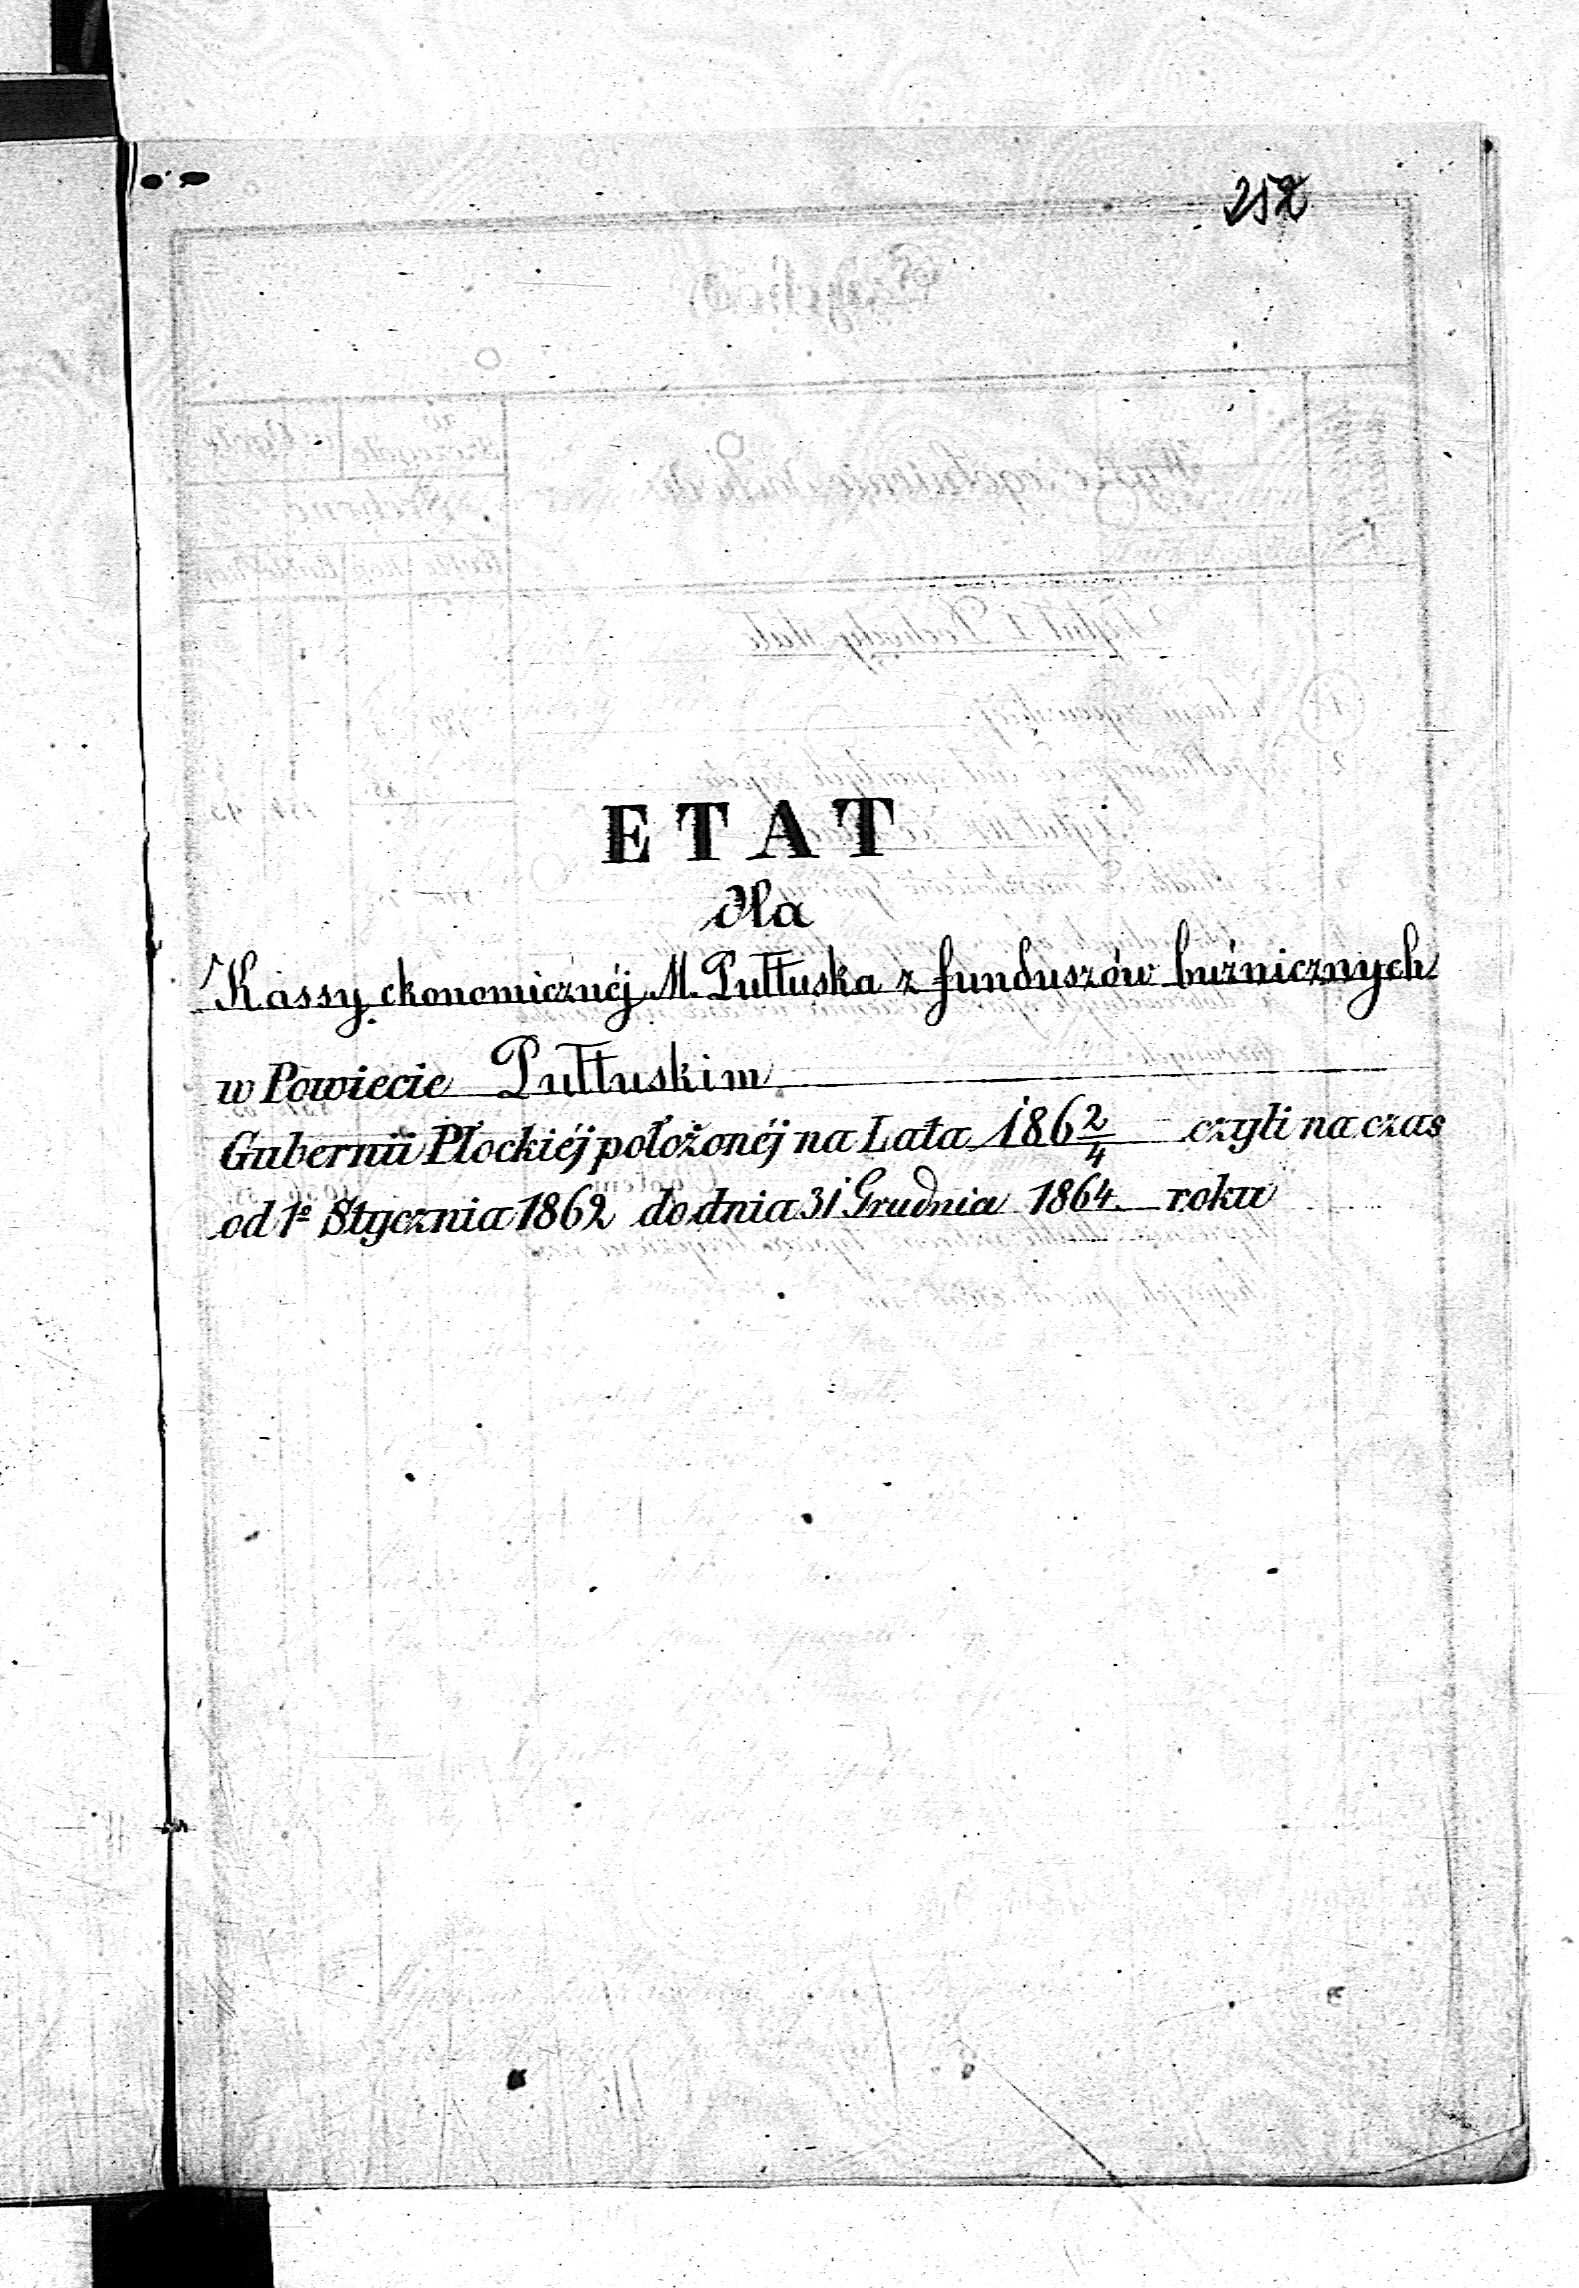 252
ETAT
dla
Kassy ekonomicznéj M. Pułtuska z funduszów bużnicznych
w Powiecie Pułtuskim
Gubernii Płockiéj położonéj na Lata 186 2/4 czyli na czas
od 1º Stycznia 1862 do dnia 31 Grudnia 1864 roku